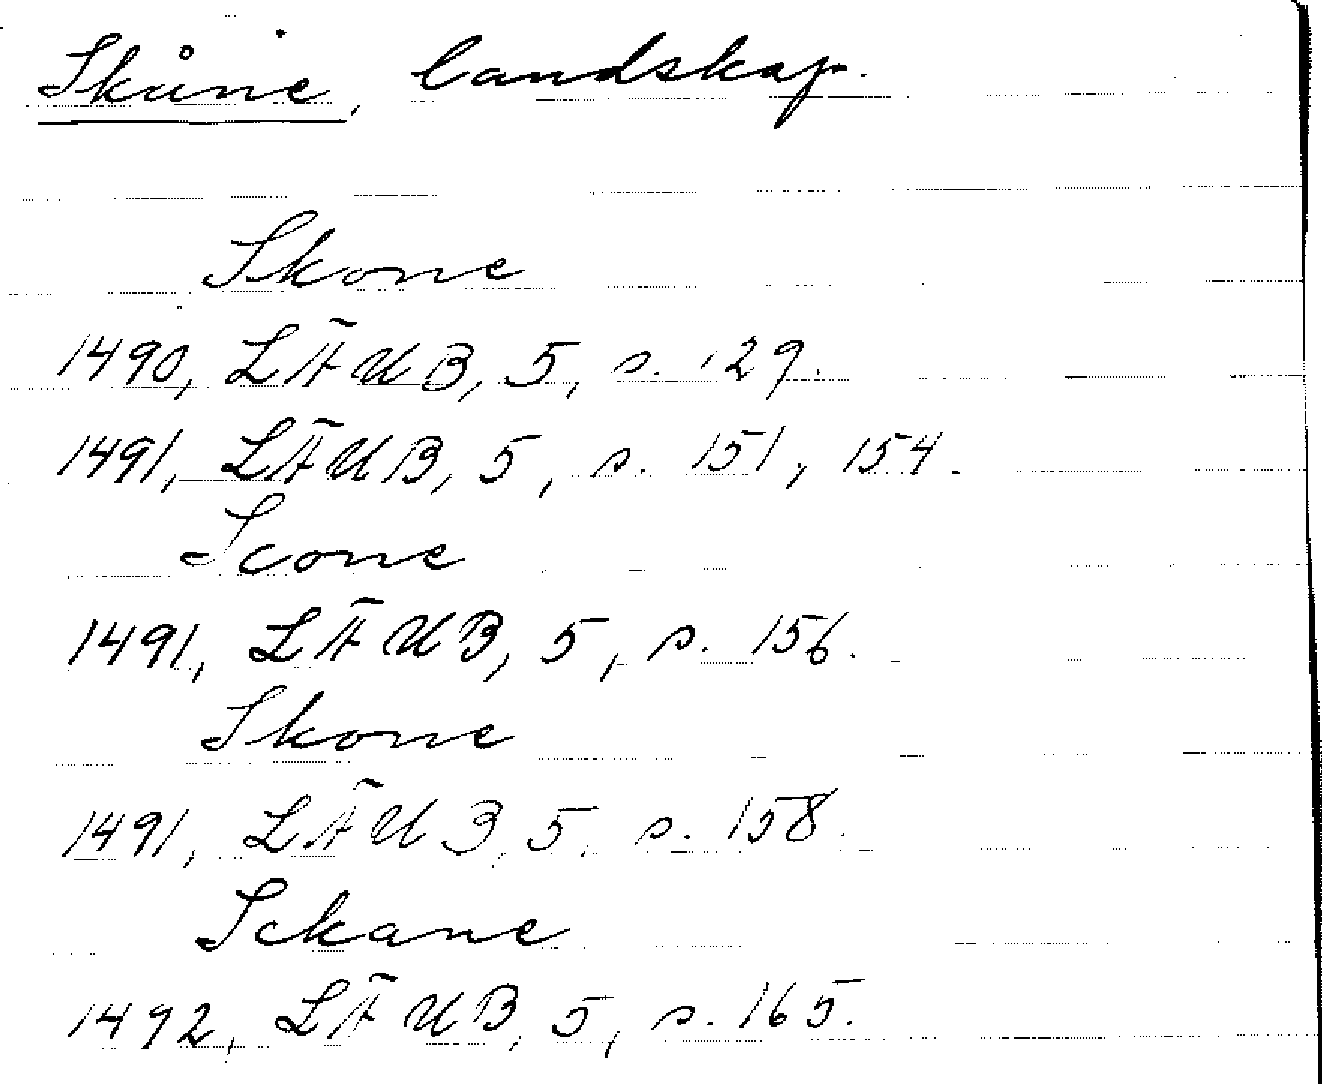 Skåne, landskap.
Skone
1490, LÄUB, 5, s. 129.
1491, LÄUB, 5, s. 151, 154.
Scone
1491, LÄUB, 5, s. 156.
Skone
1491, LÄUB, 5, s. 158.
Sckane
1492, LÄUB, 5, s. 165.